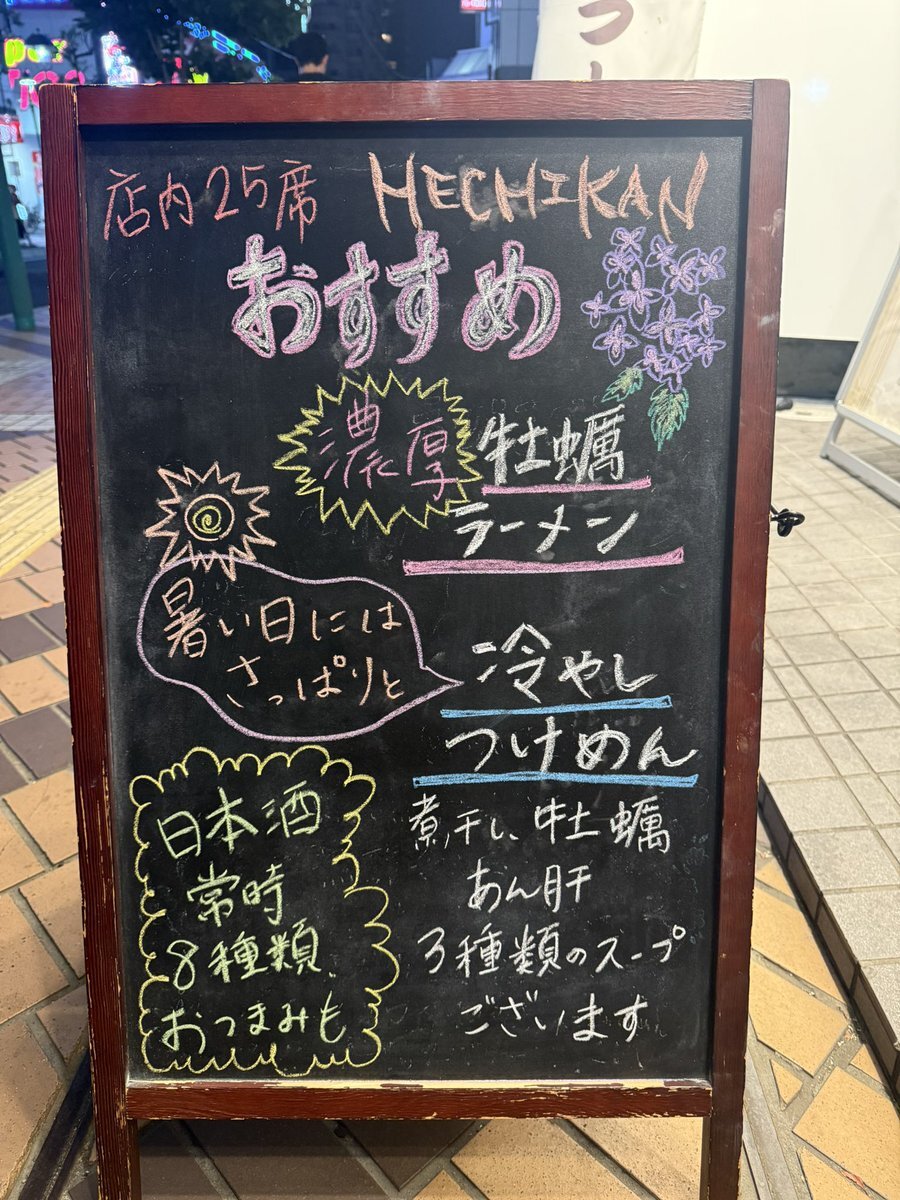 店内25席 MECHIKAN
おすすめ
濃厚 牡蠣
ラーメン
暑い日には
さっぱりと
冷やし
つけめん
煮干し、牡蠣
あん肝
3種類のスープ
ございます
日本酒
常時
8種類、
おつまみも